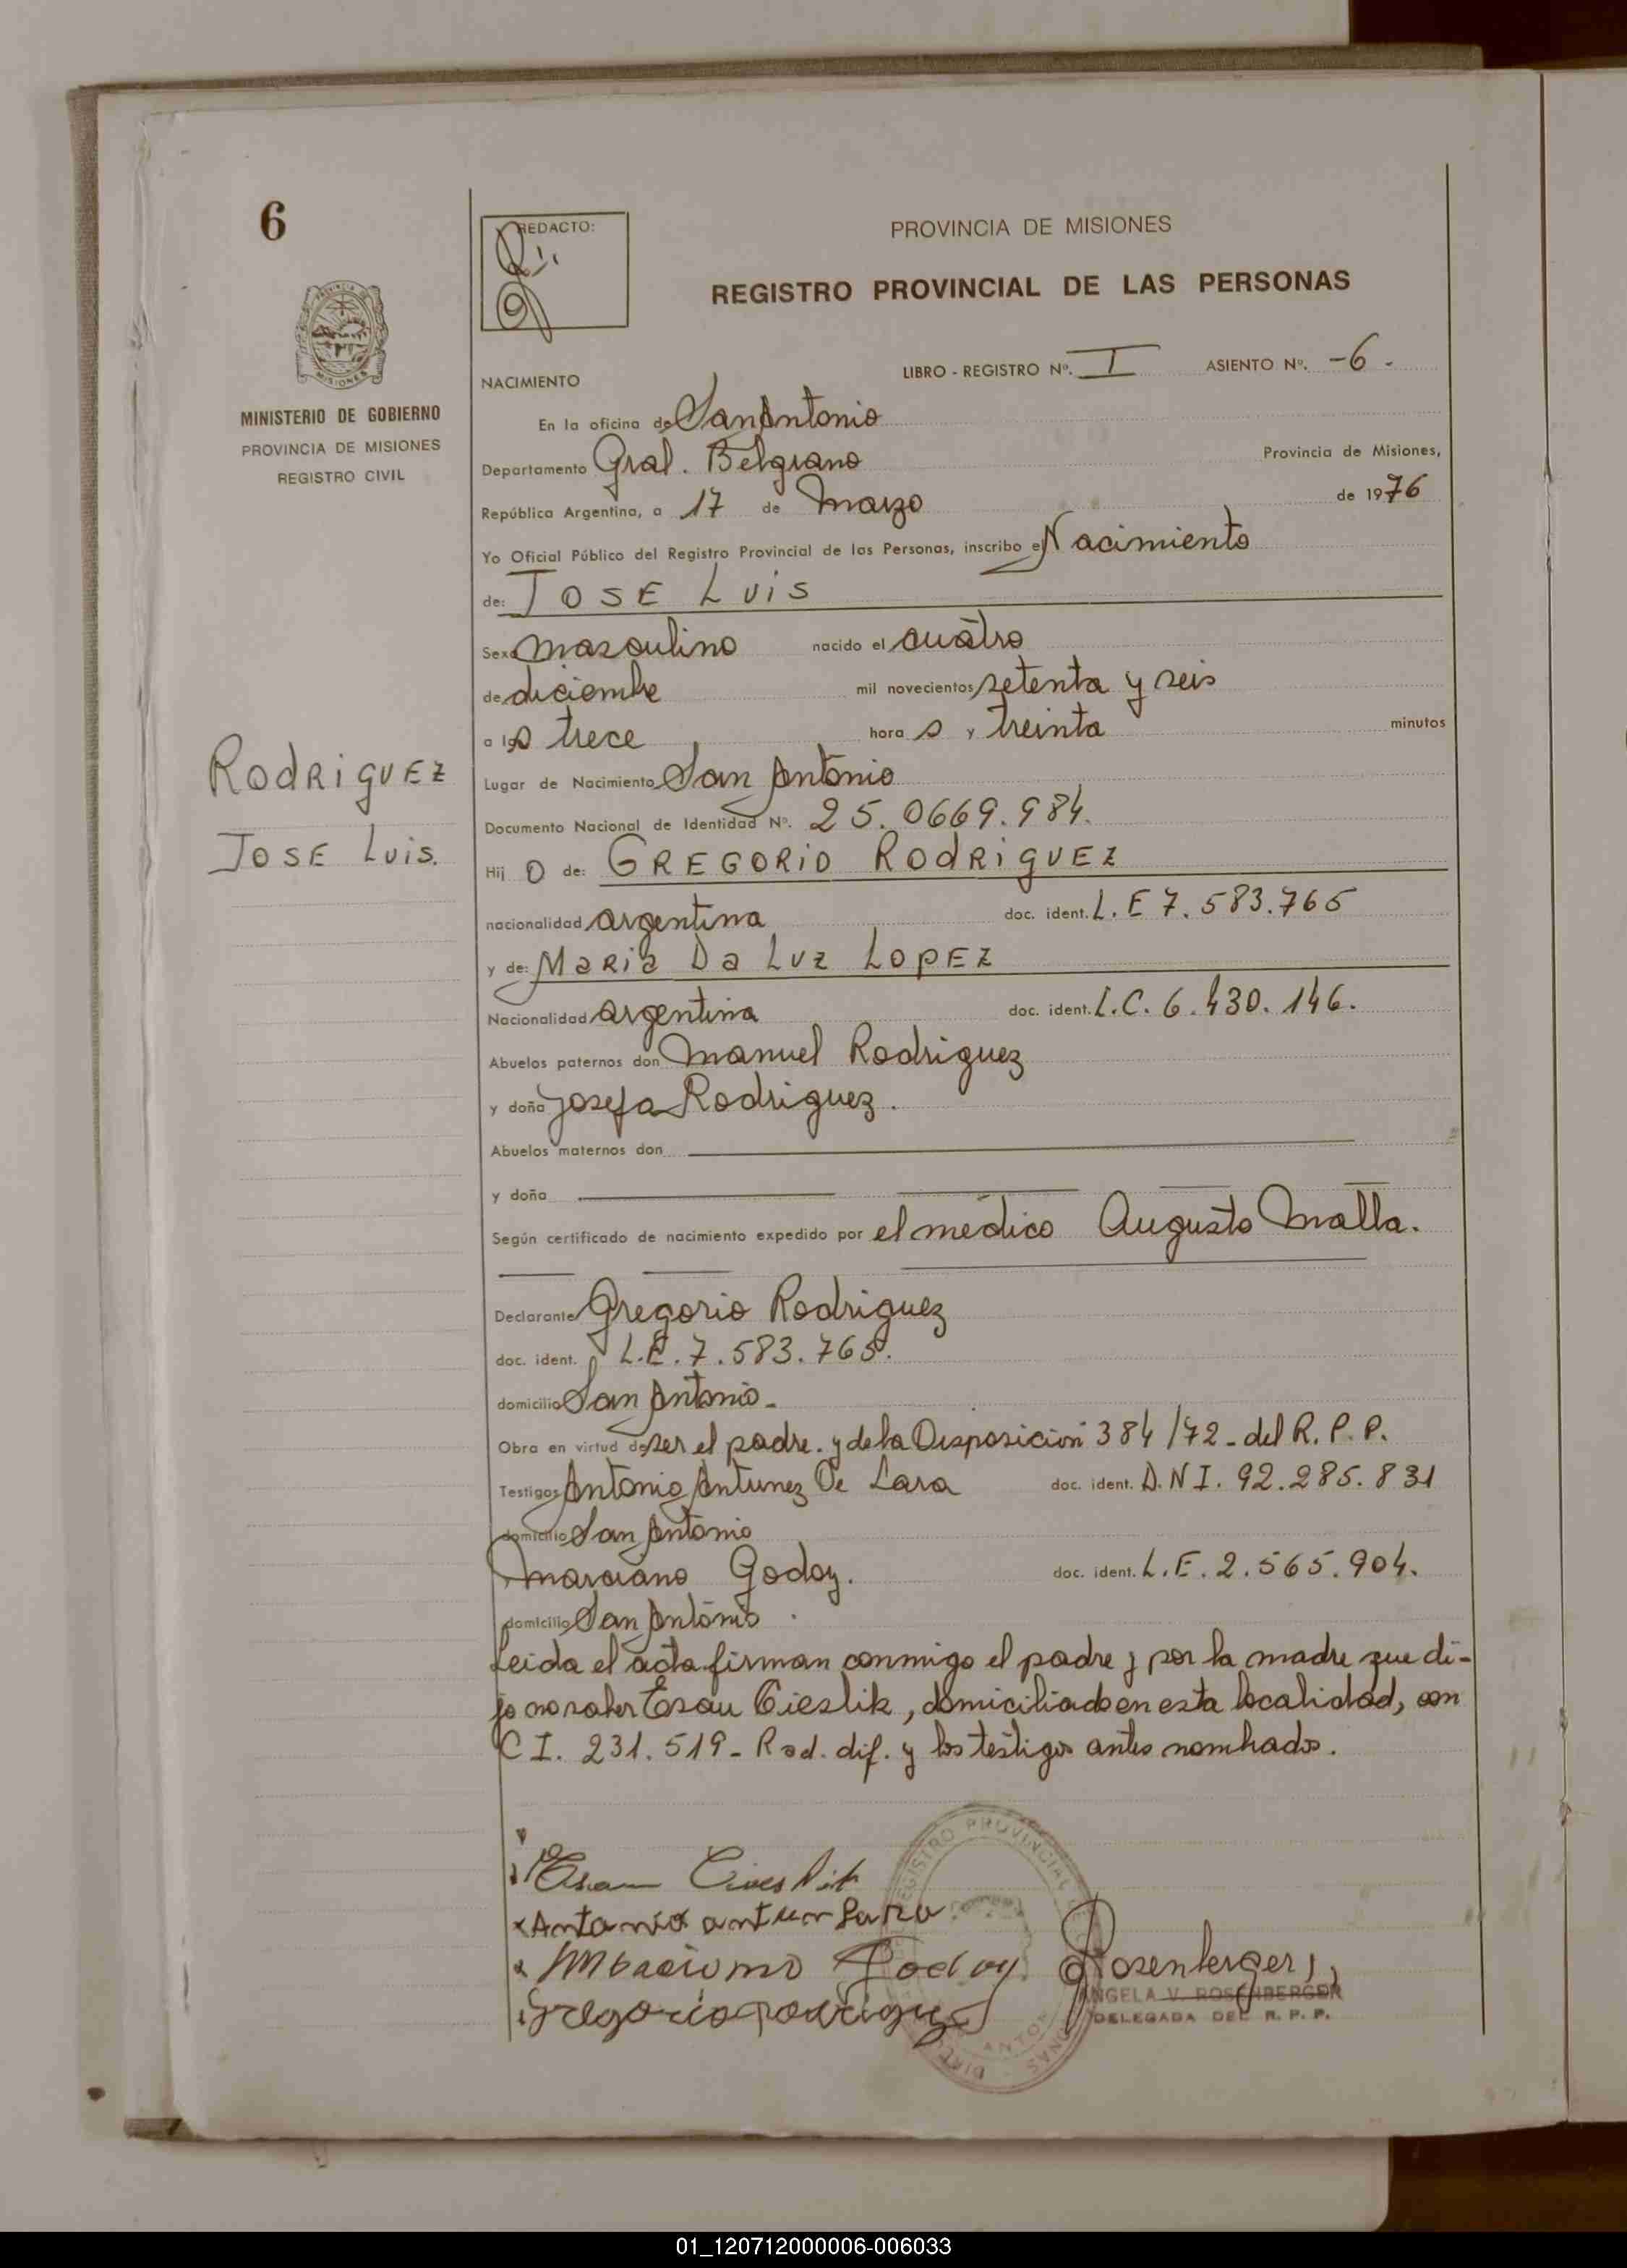 6
REDACTO:
PROVINCIA DE MISIONES
REGISTRO PROVINCIAL DE LAS PERSONAS
LIBRO - REGISTRO Nº. I ASIENTO Nº. -6-
NACIMIENTO
MINISTERIO DE GOBIERNO
PROVINCIA DE MISIONES
REGISTRO CIVIL
En la oficina de San Antonio
Departamento Gral. Belgrano Provincia de Misiones,
República Argentina, a 17 de Marzo de 1976
Yo Oficial Público del Registro Provincial de las Personas, inscribo el Nacimiento
de: JOSE LUIS
Sexo masculino nacido el cuátro
de diciembre mil novecientos setenta y seis
a las trece hora s y treinta minutos
RODRIGUEZ
JOSE LUIS.
Lugar de Nacimiento San Antonio
Documento Nacional de Identidad Nº. 25.0669.984.
Hij o de: GREGORIO RODRIGUEZ
nacionalidad argentina doc. ident. L.E 7.583.765
y de: MARIA Da LUZ LOPEZ
Nacionalidad argentina doc. ident. L.C. 6.430.146.
Abuelos paternos don Manuel Rodriguez
y doña Josefa Rodriguez.
Abuelos maternos don
y doña
Según certificado de nacimiento expedido por el médico Augusto Malla.
Declarante Gregorio Rodriguez
doc. ident. L.E. 7.583.765.
domicilio San Antonio-
Obra en virtud de ser el padre. y de la Disposición 384/72- del R.P.P.
Testigos Antonio Antunez De Lara doc. ident. D.N I. 92.285.831
domicilio San Antonio
Marciano Godoy. doc. ident. L.E. 2.565.904.
domicilio San Antonio.
Leida el acta firman conmigo el padre, por la madre que di-
jo no saber Esau Cieslik, domiciliado en esta localidad, con
C I. 231.519- Rad. dif. y los testigos antes nombrados.
Esau Cieslik
x Antonio antun Lara
x Marciano Godoy
Gregorio rodrigue
Rosenberger
ANGELA V. ROSENBERGER
DELEGADA DEL R. P. P.
REGISTRO PROVINCIAL
01_120712000006-006033